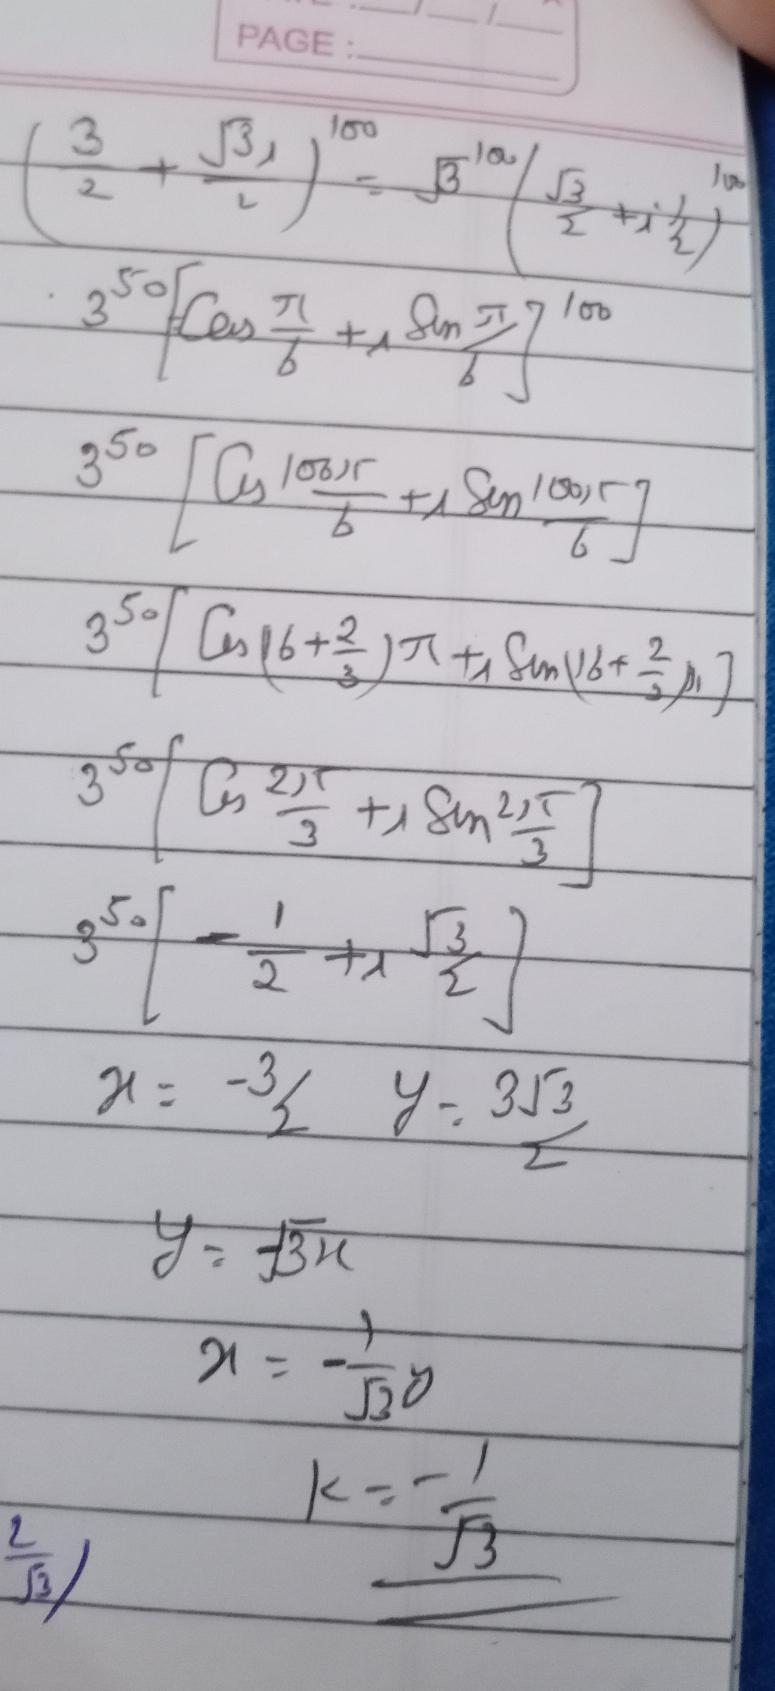 PAGE :
(3/2 + √3i/2)^100 = √3^100 (√3/2 + i 1/2)^100
3^50 [Cos π/6 + i Sin π/6]^100
3^50 [Cos 100π/6 + i Sin 100π/6]
3^50 [Cos (16 + 2/3)π + i Sin (16 + 2/3)π]
3^50 [Cos 2π/3 + i Sin 2π/3]
3^50 [- 1/2 + i √3/2]
x = -3/2 y = 3√3/2
y = -√3x
x = -1/√3 y
k = -1/√3
2/√3)